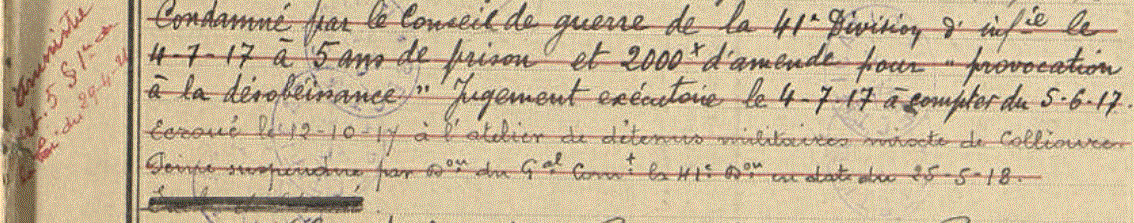 Condamné par le Conseil de guerre de la 41e Division d'infie le
4-7-17 à 5 ans de prison et 2000f d'amende pour " provocation
à la désobéissance " Jugement exécutoire le 4-7-17 à compter du 5-6-17.
Ecroué le 12-10-17 à l'atelier de détenus militaires mixte de Collioure
Peine suspendue par Don du Gal Comt la 41e Don en date du 25-5-18.
Amnistie
art. 5 § 1er
Loi du 29-4-21